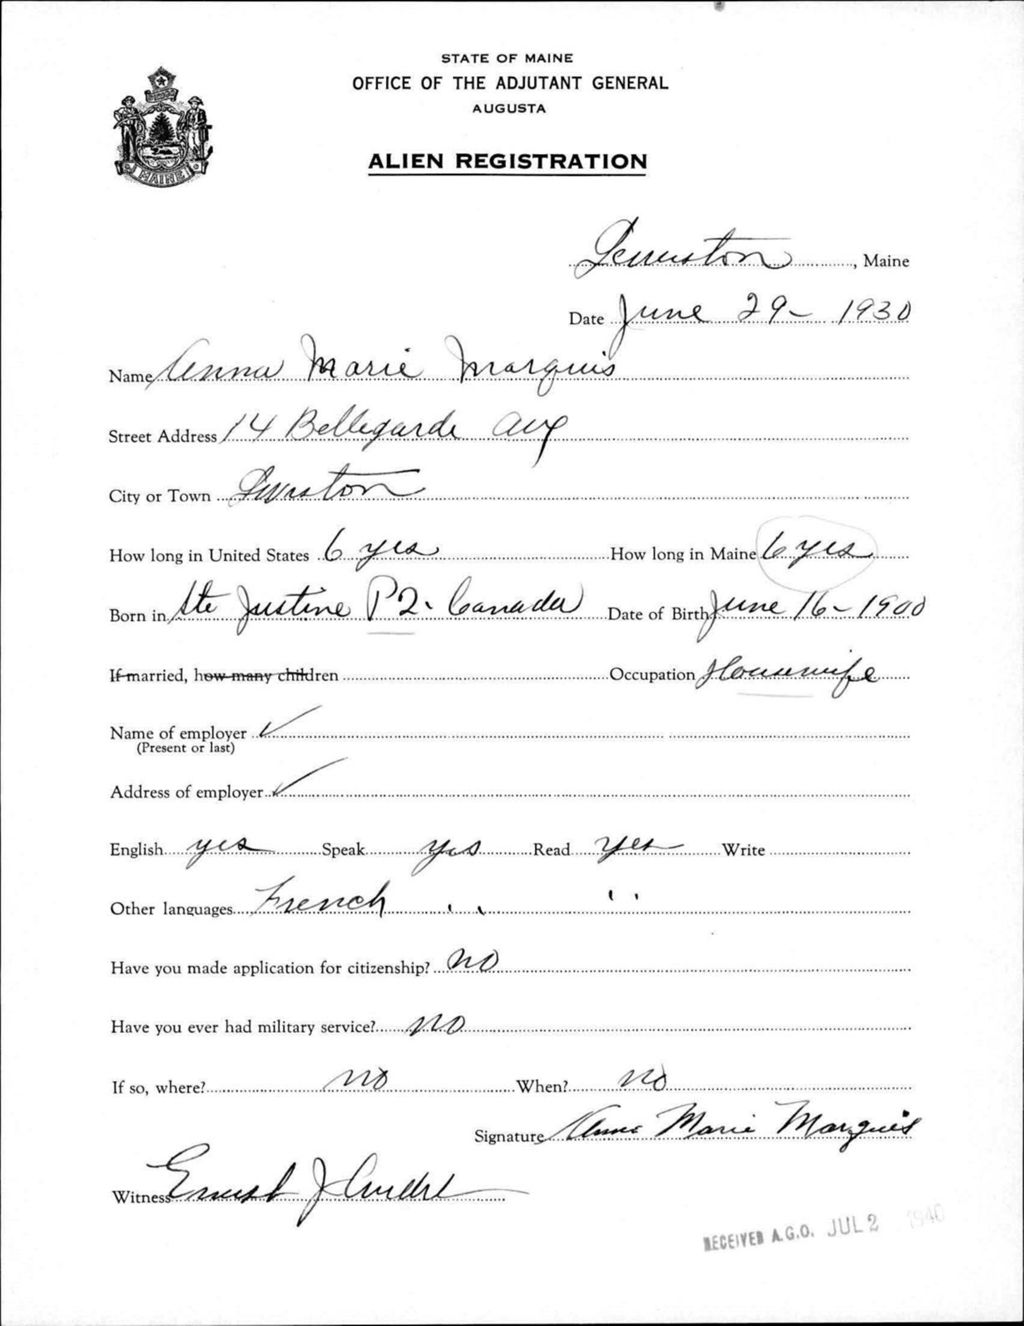 STATE OF MAINE
OFFICE OF THE ADJUTANT GENERAL
AUGUSTA
MAINE
ALIEN REGISTRATION
Lewiston, Maine
Date June 29 - 1930
Name Anna Marie Marquis
Street Address 14 Bellegarde Ave
City or Town Lewiston
How long in United States 6 yrs How long in Maine 6 yrs
Born in Ste Justine P Q. Canada Date of Birth June 16 - 1900
If married, how many children Occupation Housewife
Name of employer ✓
(Present or last)
Address of employer ✓
English yes Speak yes Read yes Write
Other languages French " "
Have you made application for citizenship? no
Have you ever had military service? no
If so, where? no When? no
Signature Anna Marie Marquis
Witness Ernest J
RECEIVED A.G.O. JUL 2 1940